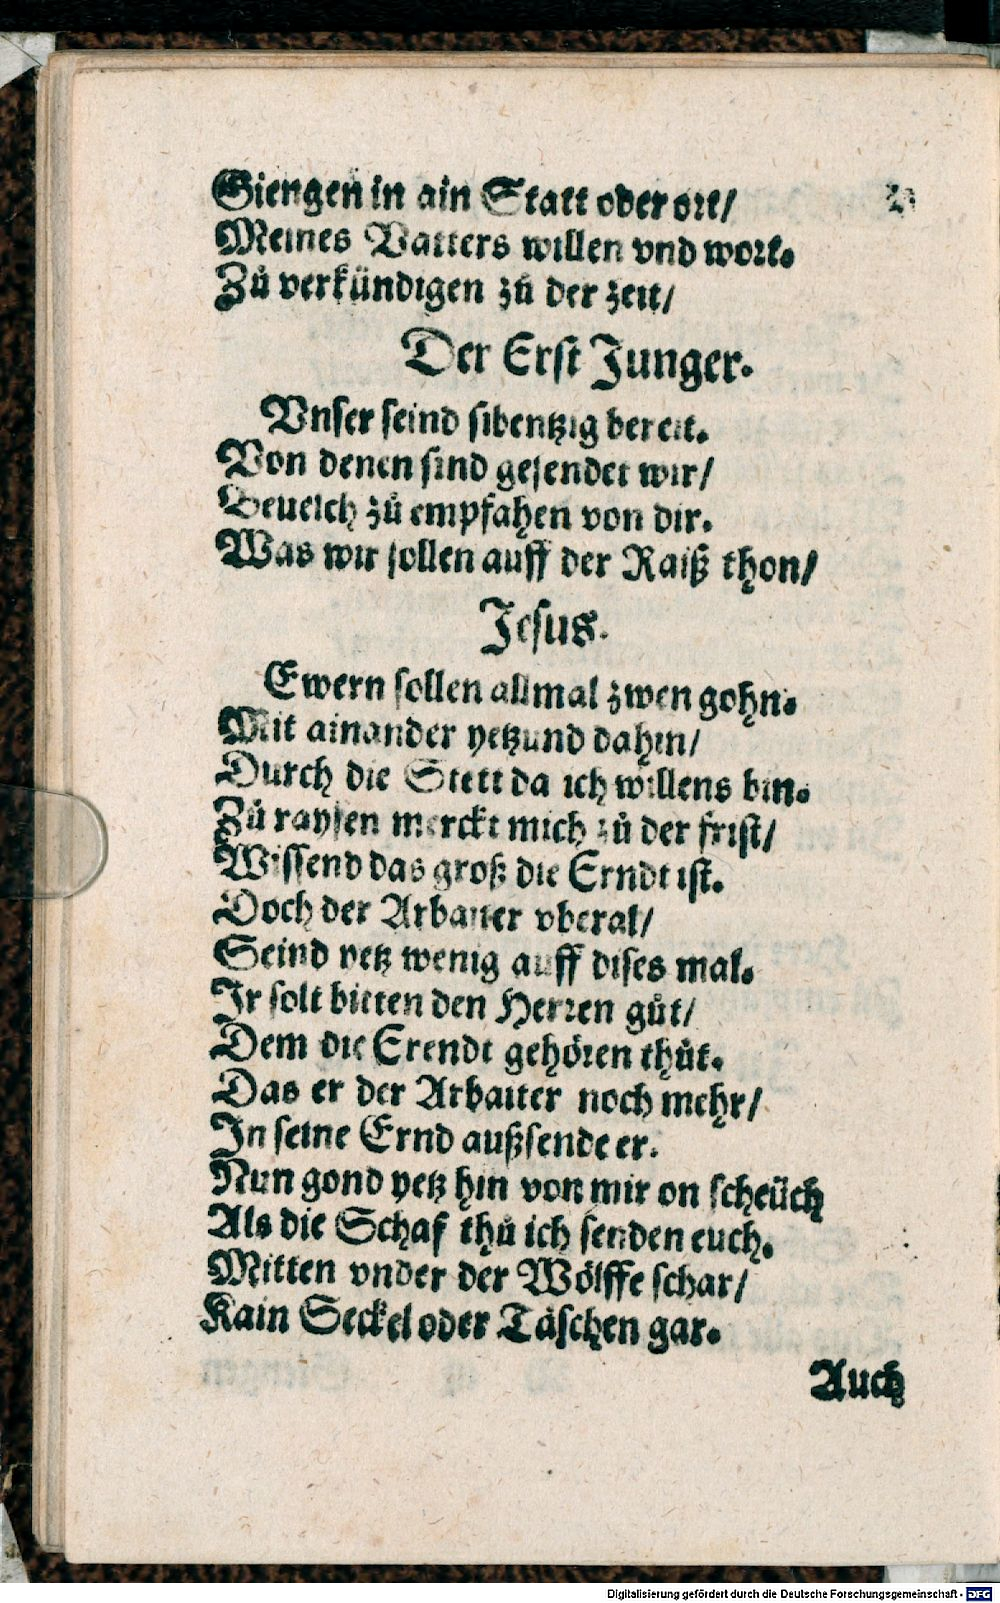 Giengen in ain Statt oder ort/
Meines Vatters willen vnd wort.
Zů verkündigen zů der zeit/
Der Erst Junger.
Vnser seind sibentzig bereit.
Von denen sind gesendet wir/
Beuelch zů empfahen von dir.
Was wir sollen auff der Raiß thon/
Jesus.
Ewern sollen allmal zwen gohn.
Mit ainander yetzund dahin/
Durch die Stett da ich willens bin.
Zů raysen merckt mich zů der frist/
Wissend das groß die Erndt ist.
Doch der Arbaiter vberal/
Seind yetz wenig auff dises mal.
Ir solt bitten den Herren gůt/
Dem die Erendt gehören thůt.
Das er der Arbaiter noch mehr/
In seine Ernd außsende er.
Nun gond yetz hin von mir on scheüch
Als die Schaf thů ich senden euch.
Mitten vnder der Wölffe schar/
Kain Seckel oder Täschen gar.
Auch
Digitalisierung gefördert durch die Deutsche Forschungsgemeinschaft - DFG